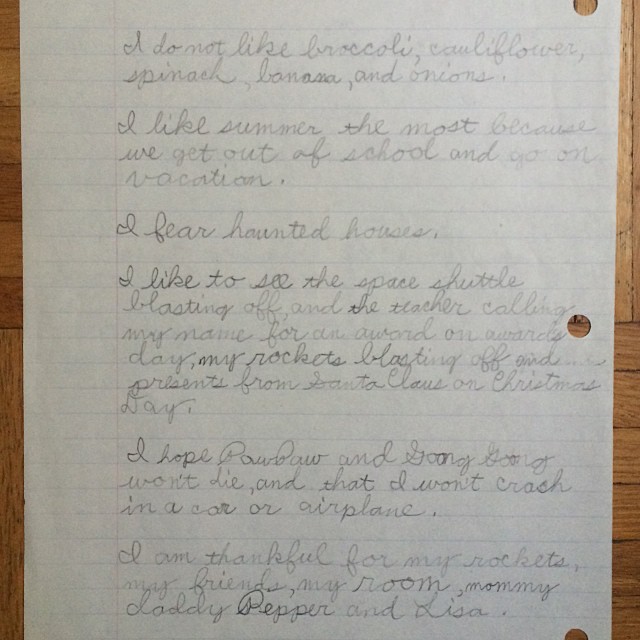 I do not like broccoli, cauliflower,
spinach, banana, and onions.
I like summer the most because
we get out of school and go on
vacation.
I fear haunted houses.
I like to see the space shuttle
blasting off, and the teacher calling
my name for an award on awards
day, my rockets blasting off and
presents from Santa Claus on Christmas
Day.
I hope PawPaw and Gong Gong
won't die, and that I won't crash
in a car or airplane.
I am thankful for my rockets,
my friends, my room, mommy
daddy Pepper and Lisa.